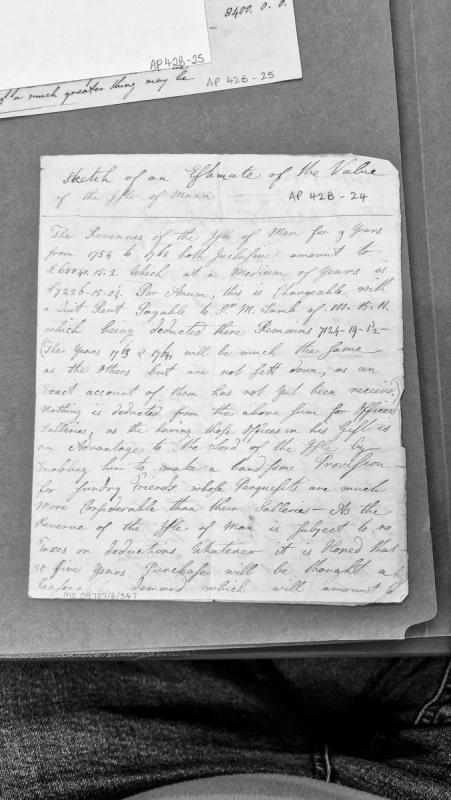 8400. 0. 0.
AP 42B-25
a much greater thing may be
AP 42B-25
Sketch of an Estimate of the Value
of the Isle of Mann
AP 42B-24
The Revenues of the Isle of Man for 9 Years
from 1754 to 1762 both Inclusive amount to
which at a Medium of Years is
Per Anum, this is Chargeable with
a Quit Rent Payable to of 101. 15. 11.
which being deducted there Remains 7124-19-1½
(The Years 1763 & 1764, will be much the same
as the others but are not sett down, as an
Exact account of them has not yet been receive)
Nothing is deducted from the above sum for Officers
Salleries, as the having those Offices in his Gift is
an Advantage to the Lord of the Isle by
Enabling him to make a handsome Provision
for sundry Friends whose Perquesits are much
More Considerable than their Salleries - As the
Revenue of the Isle of Man is subject to no
Taxes or deductions Whatever it is Hoped that
35 five Years Purchase will be thought a
Reasonal demand which will amount to
MS 09707/6/347